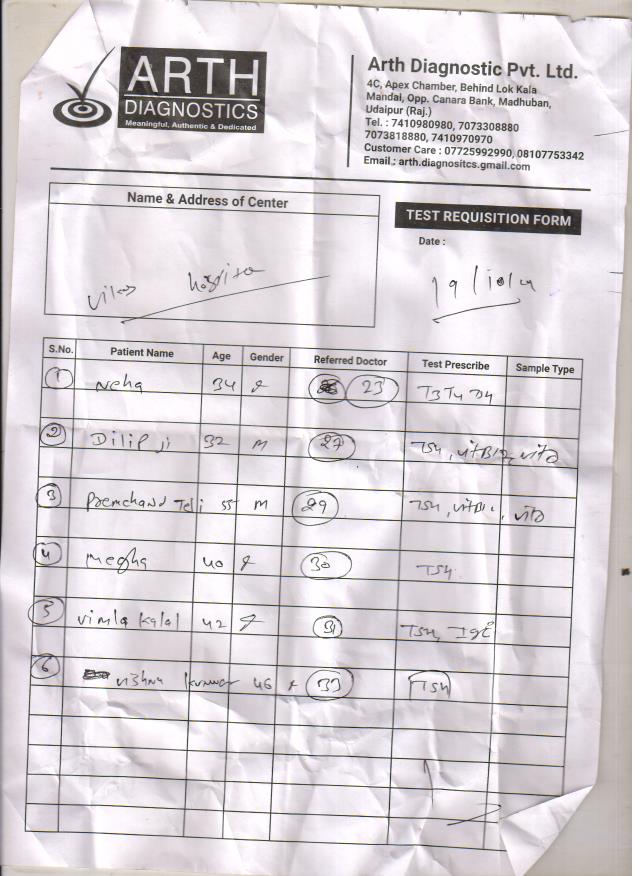 ARTH
DIAGNOSTICS
Meaningful, Authentic & Dedicated
Arth Diagnostic Pvt. Ltd.
4C, Apex Chamber, Behind Lok Kala
Mandai, Opp. Canara Bank, Madhuban,
Udaipur (Raj.)
Tel. : 7410980980, 7073308880
7073818880, 7410970970
Customer Care : 07725992990, 08107753342
Email : arth.diagnositcs.gmail.com
Name & Address of Center
TEST REQUISITION FORM
Date :
19/10/
S.No. Patient Name Age Gender Referred Doctor Test Prescribe Sample Type
1 Neha 34 F 23 T3 T4
2 Dilip Ji 32 M 27 TSH, vitB12, vitD
3 Premchand Teli 55 M 29 TSH, vitB12, vitD
4 Megha 40 F 30 TSH
5 Vimla Kalal 42 F 31 TSH, IgE
6 Vishnu Kumar 46 33 TSH